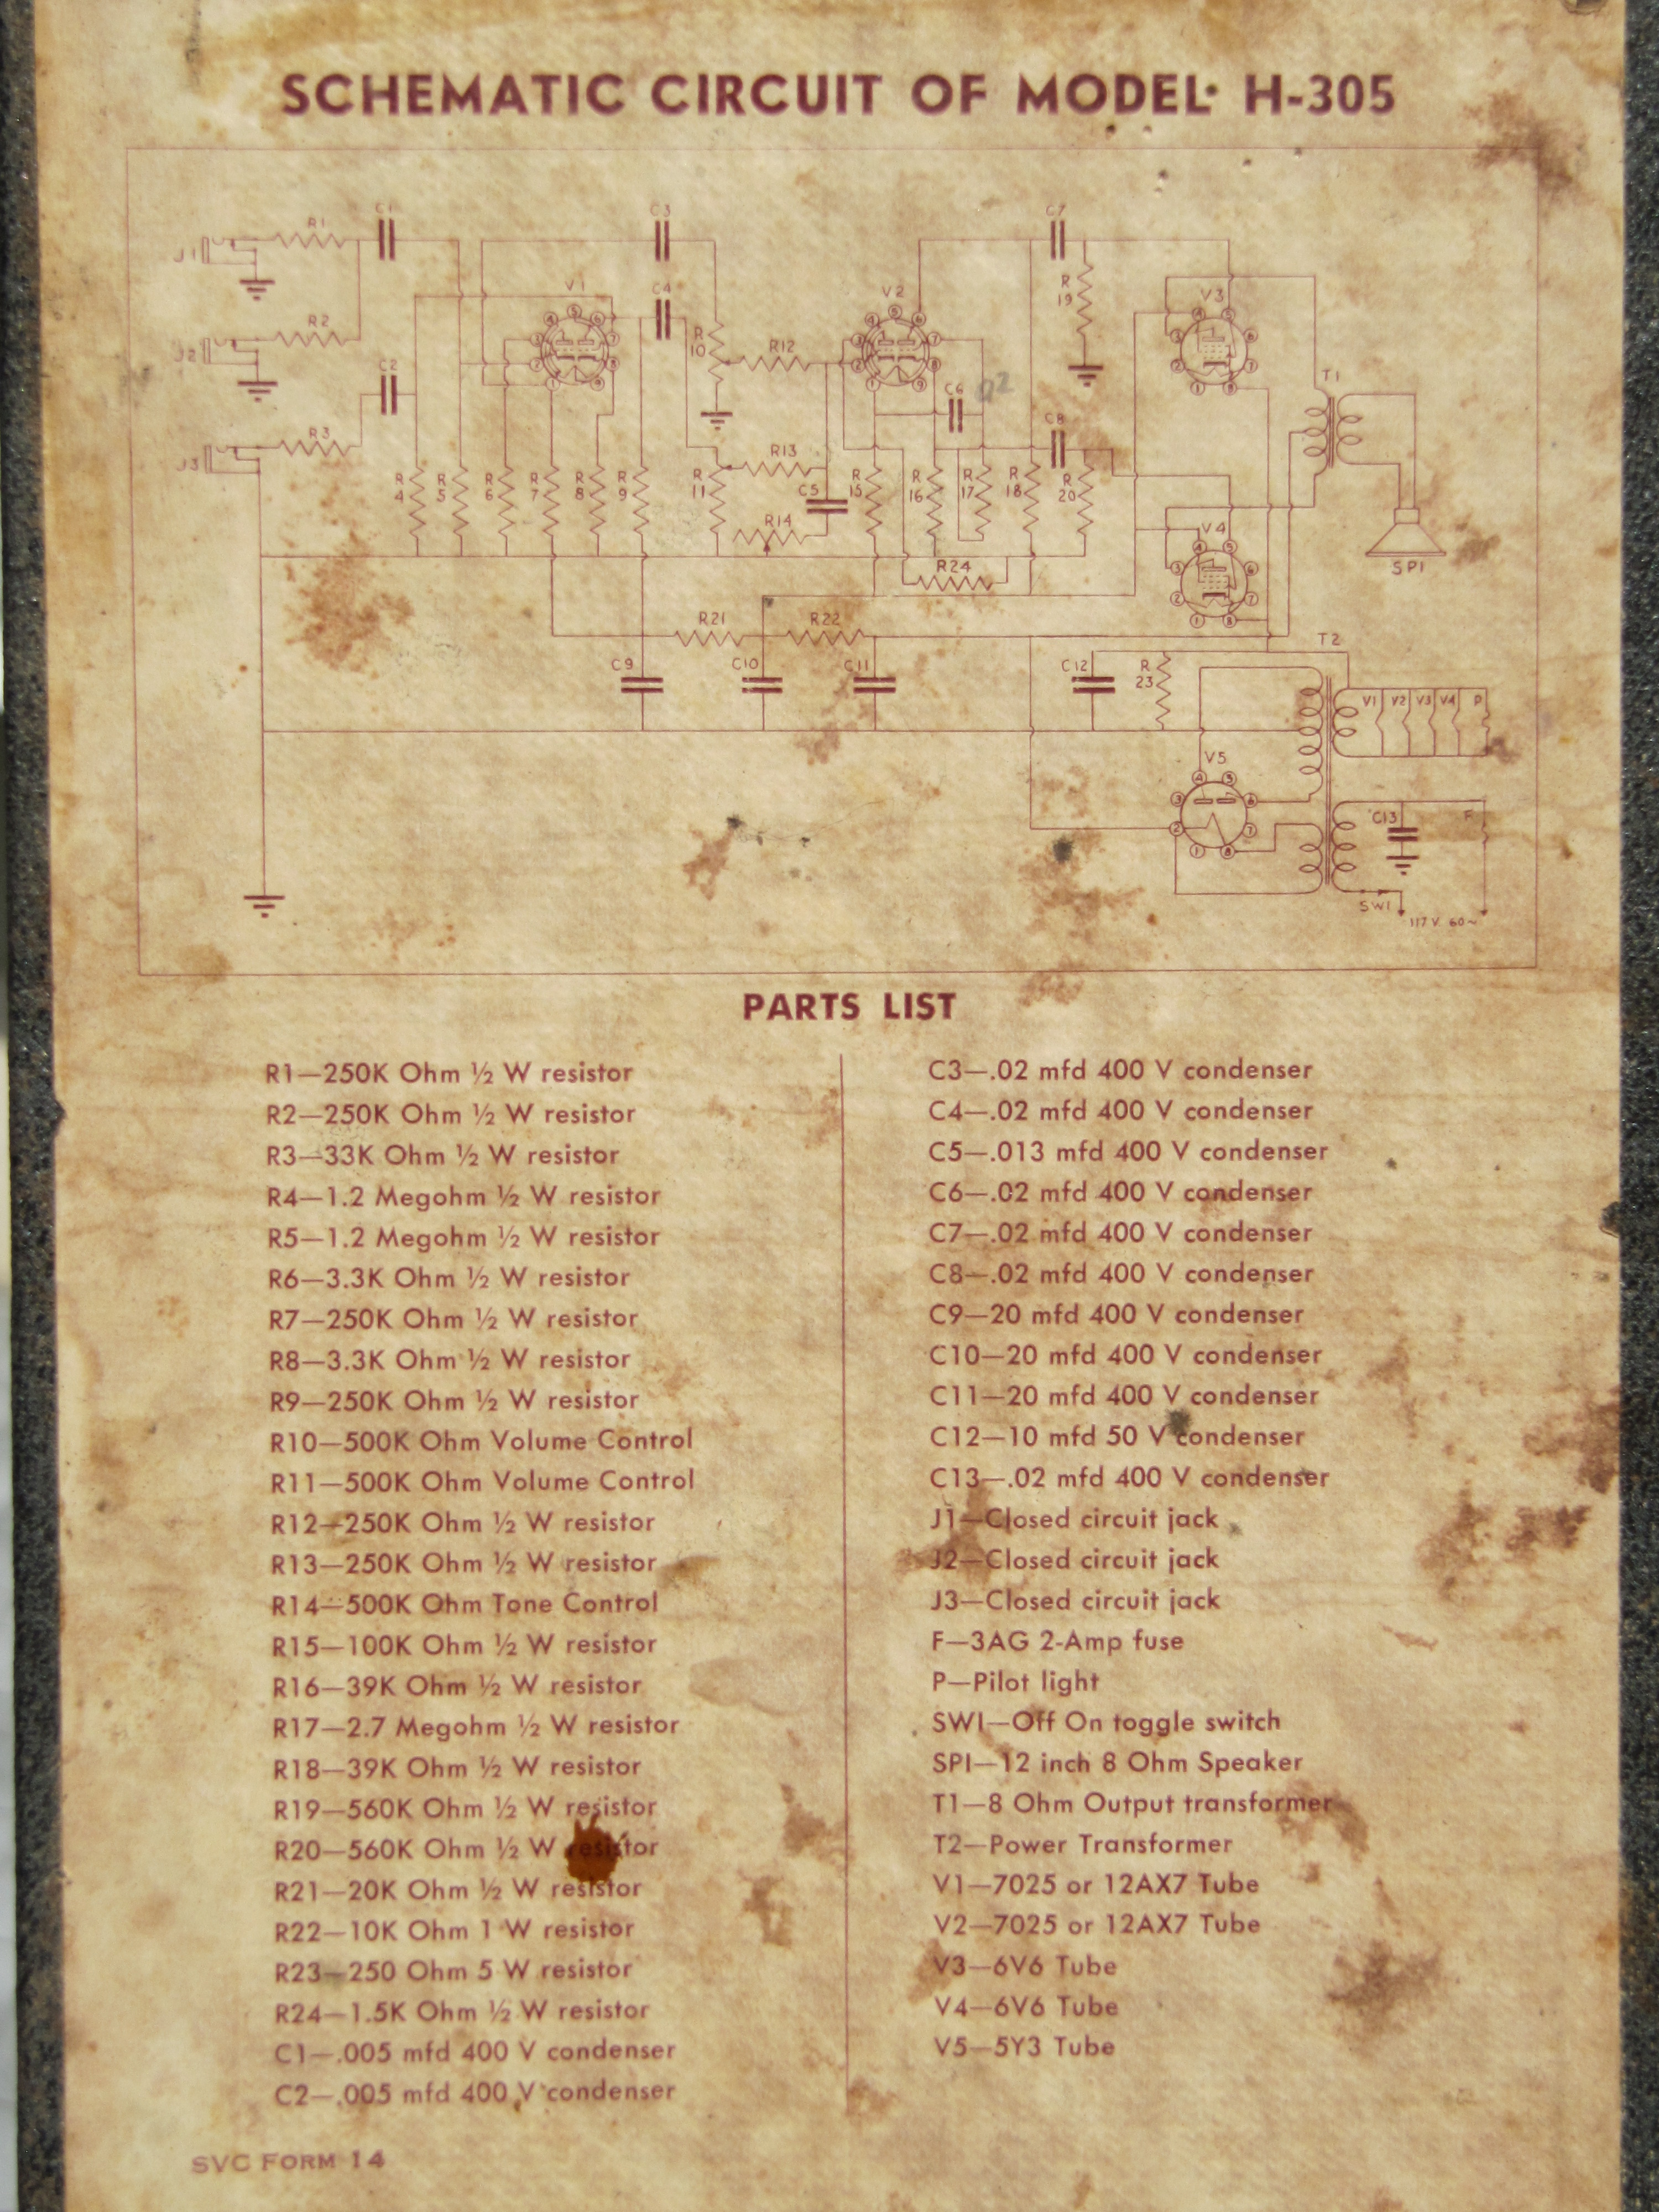 SCHEMATIC CIRCUIT OF MODEL H-305
C1 C3 C7
R1
J1
R19
V1 C4 V2 V3
R2
R10 R12
J2
C2 C6 T1
R3 C8
J3 R13
R4 R5 R6 R7 R8 R9 R11 C5 R15 R16 R17 R18 R20
R14 V4
R24 SP1
R21 R22 T2
C9 C10 C11 C12 R23
V1 V2 V3 V4 P
V5
C13 F
SW1
117 V. 60~
PARTS LIST
R1—250K Ohm ½ W resistor
R2—250K Ohm ½ W resistor
R3—33K Ohm ½ W resistor
R4—1.2 Megohm ½ W resistor
R5—1.2 Megohm ½ W resistor
R6—3.3K Ohm ½ W resistor
R7—250K Ohm ½ W resistor
R8—3.3K Ohm ½ W resistor
R9—250K Ohm ½ W resistor
R10—500K Ohm Volume Control
R11—500K Ohm Volume Control
R12—250K Ohm ½ W resistor
R13—250K Ohm ½ W resistor
R14—500K Ohm Tone Control
R15—100K Ohm ½ W resistor
R16—39K Ohm ½ W resistor
R17—2.7 Megohm ½ W resistor
R18—39K Ohm ½ W resistor
R19—560K Ohm ½ W resistor
R20—560K Ohm ½ W resistor
R21—20K Ohm ½ W resistor
R22—10K Ohm 1 W resistor
R23—250 Ohm 5 W resistor
R24—1.5K Ohm ½ W resistor
C1—.005 mfd 400 V condenser
C2—.005 mfd 400 V condenser
C3—.02 mfd 400 V condenser
C4—.02 mfd 400 V condenser
C5—.013 mfd 400 V condenser
C6—.02 mfd 400 V condenser
C7—.02 mfd 400 V condenser
C8—.02 mfd 400 V condenser
C9—20 mfd 400 V condenser
C10—20 mfd 400 V condenser
C11—20 mfd 400 V condenser
C12—10 mfd 50 V condenser
C13—.02 mfd 400 V condenser
J1—Closed circuit jack
J2—Closed circuit jack
J3—Closed circuit jack
F—3AG 2-Amp fuse
P—Pilot light
SWI—Off On toggle switch
SPI—12 inch 8 Ohm Speaker
T1—8 Ohm Output transformer
T2—Power Transformer
V1—7025 or 12AX7 Tube
V2—7025 or 12AX7 Tube
V3—6V6 Tube
V4—6V6 Tube
V5—5Y3 Tube
SVC FORM 14